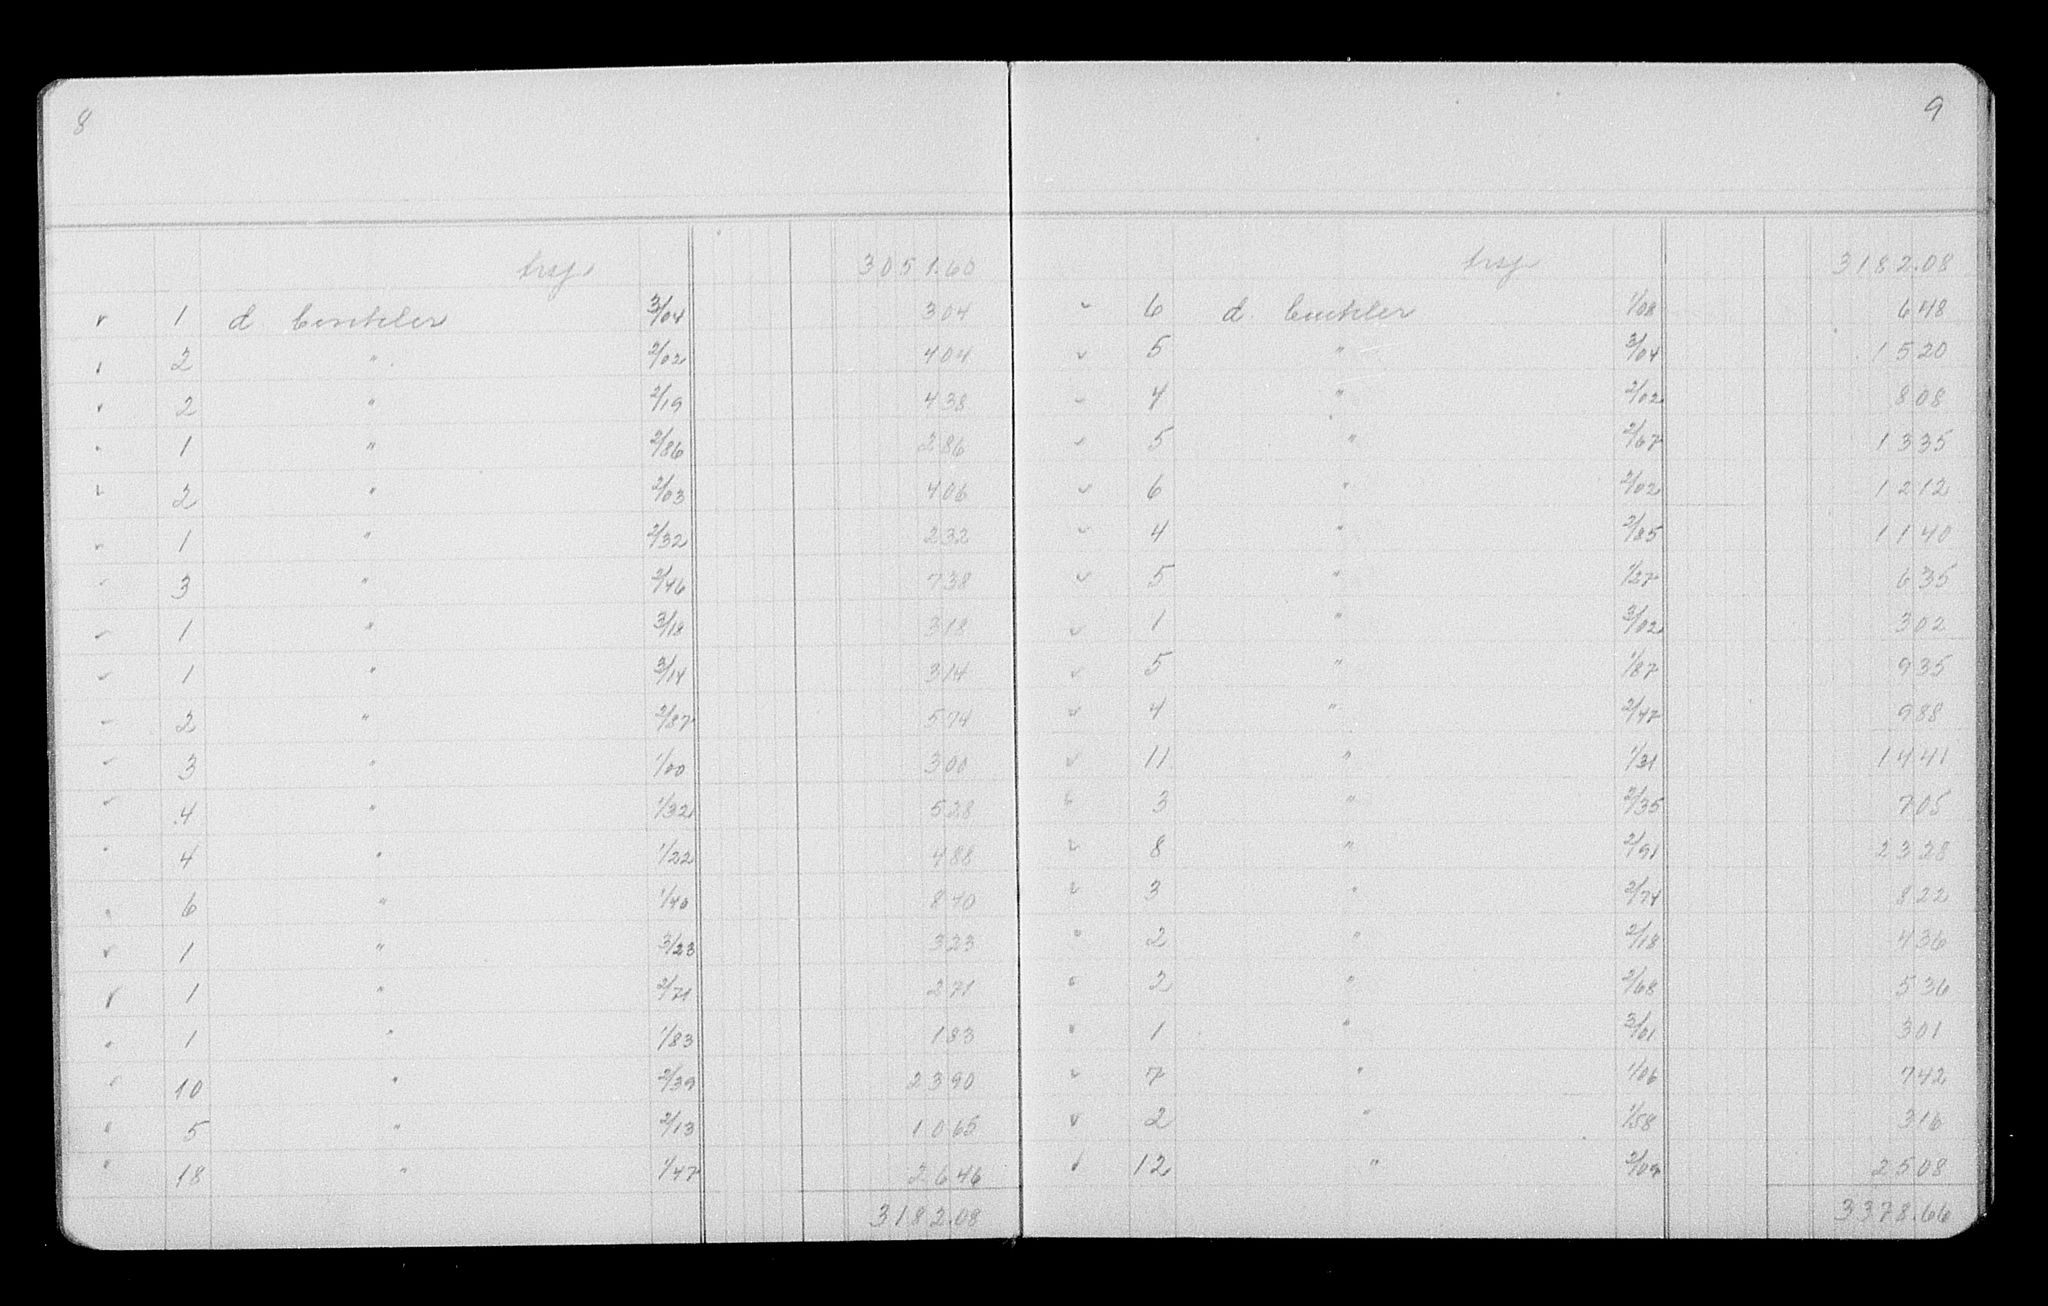 8
trsp. 3051.60
1 d 3/04 304
2 " 2/02 404
2 " 2/19 438
1 " 2/86 286
2 " 2/03 406
1 " 2/32 232
3 " 2/46 738
1 " 3/18 318
1 " 3/14 314
2 " 2/87 574
3 " 1/00 300
4 " 1/32 528
4 " 1/22 488
6 " 1/40 840
1 " 3/23 323
1 " 2/71 271
1 " 1/83 183
10 " 2/39 2390
5 " 2/13 1065
18 " 1/47 2646
3182.08
9
trsp 3182.08
6 d. 1/08 648
5 " 3/04 1520
4 " 2/02 808
5 " 2/67 1335
6 " 2/02 1212
4 " 2/85 1140
5 " 1/27 635
1 " 3/02 302
5 " 1/87 935
4 " 2/47 988
11 " 1/31 1441
3 " 2/35 705
8 " 2/91 2328
3 " 2/74 822
2 " 2/18 436
2 " 2/68 536
1 " 3/01 301
7 " 1/06 742
2 " 1/58 316
12 " 2/09 2508
3378.66